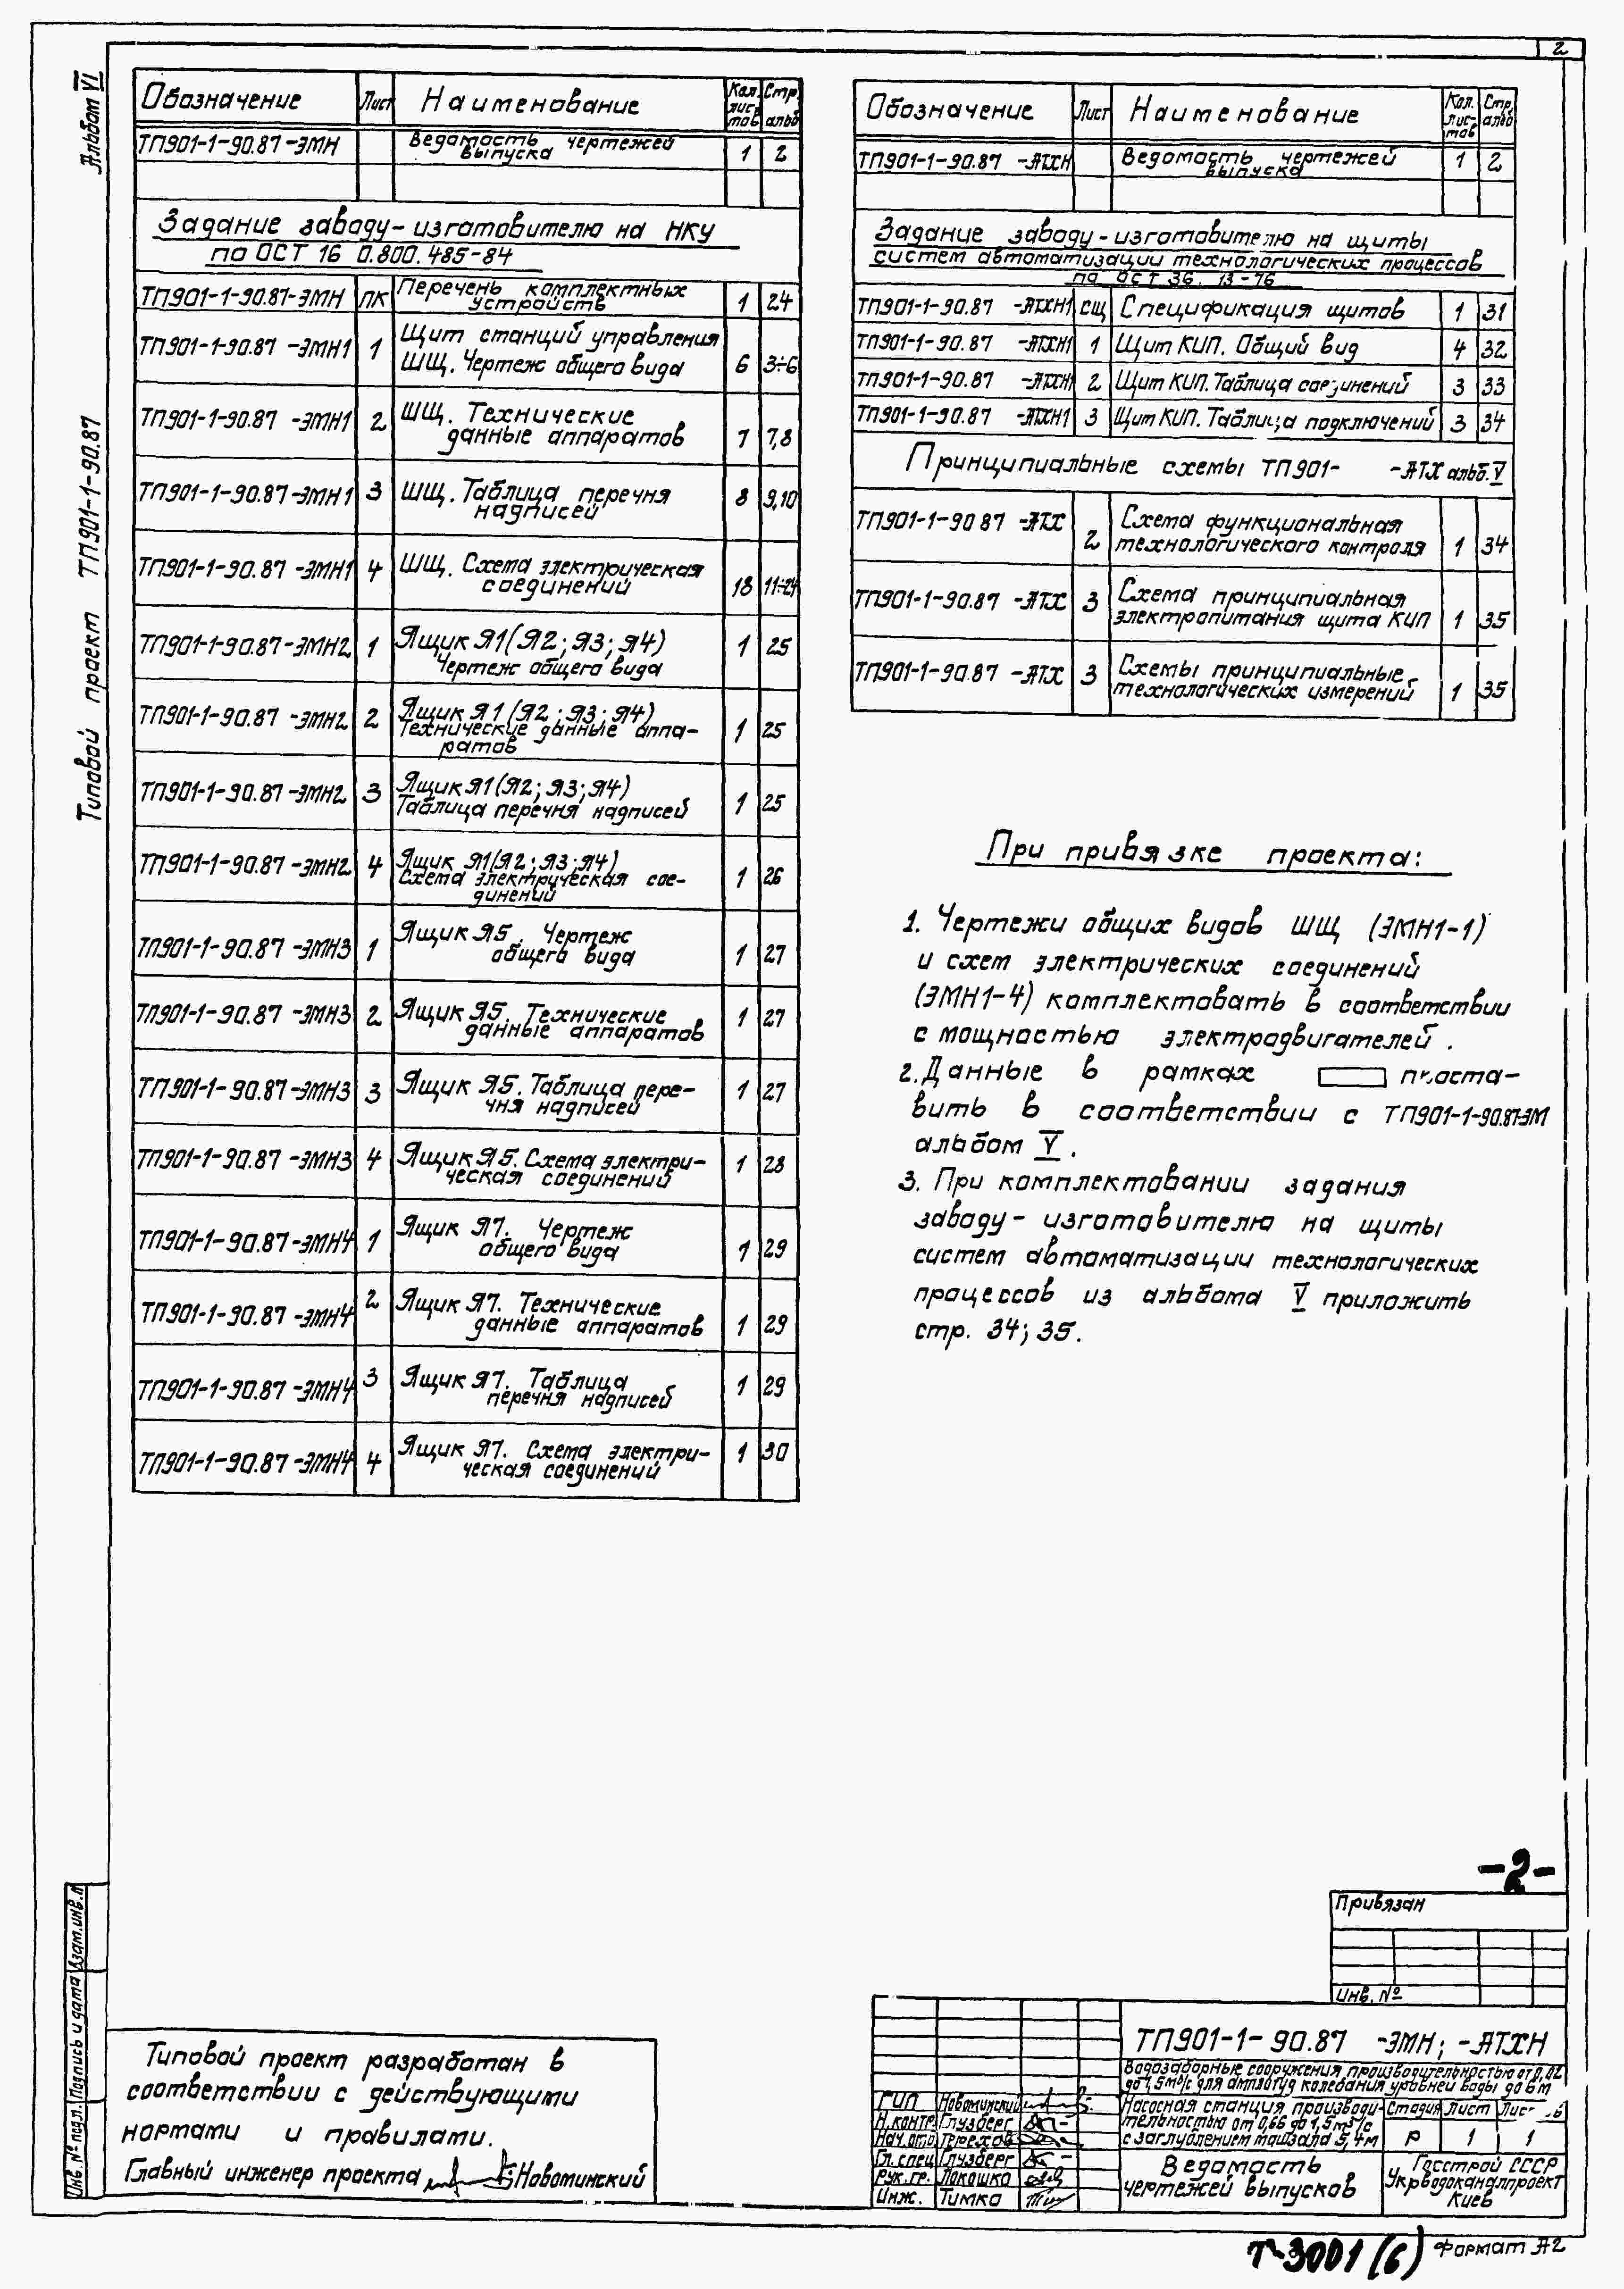 2
Альбом VI
Типовой проект ТП901-1-90.87
Обозначение Лист Наименование Кол. лис-тов Стр. альб
ТП901-1-90.87-ЭМН Ведомость чертежей выпуска 1 2
Задание заводу-изготовителю на НКУ
по ОСТ 16 0.800.485-84
ТП901-1-90.87-ЭМН ПК Перечень комплектных устройств 1 24
ТП901-1-90.87-ЭМН1 1 Щит станций управления ШЩ. Чертеж общего вида 6 3÷6
ТП901-1-90.87-ЭМН1 2 ШЩ. Технические данные аппаратов 7 7,8
ТП901-1-90.87-ЭМН1 3 ШЩ. Таблица перечня надписей 8 9,10
ТП901-1-90.87-ЭМН1 4 ШЩ. Схема электрическая соединений 18 11÷24
ТП901-1-90.87-ЭМН2 1 Ящик Я1(Я2;Я3;Я4) Чертеж общего вида 1 25
ТП901-1-90.87-ЭМН2 2 Ящик Я1(Я2;Я3;Я4) Технические данные аппа-ратов 1 25
ТП901-1-90.87-ЭМН2 3 Ящик Я1(Я2;Я3;Я4) Таблица перечня надписей 1 25
ТП901-1-90.87-ЭМН2 4 Ящик Я1(Я2;Я3;Я4) Схема электрическая сое-динений 1 26
ТП901-1-90.87-ЭМН3 1 Ящик Я5. Чертеж общего вида 1 27
ТП901-1-90.87-ЭМН3 2 Ящик Я5. Технические данные аппаратов 1 27
ТП901-1-90.87-ЭМН3 3 Ящик Я5. Таблица пере-чня надписей 1 27
ТП901-1-90.87-ЭМН3 4 Ящик Я5. Схема электри-ческая соединений 1 28
ТП901-1-90.87-ЭМН4 1 Ящик Я7. Чертеж общего вида 1 29
ТП901-1-90.87-ЭМН4 2 Ящик Я7. Технические данные аппаратов 1 29
ТП901-1-90.87-ЭМН4 3 Ящик Я7. Таблица перечня надписей 1 29
ТП901-1-90.87-ЭМН4 4 Ящик Я7. Схема электри-ческая соединений 1 30
Обозначение Лист Наименование Кол. лис-тов Стр. альб
ТП901-1-90.87 -АТХН Ведомость чертежей выпуска 1 2
Задание заводу-изготовителю на щиты
систем автоматизации технологических процессов
по ОСТ 36.13-76
ТП901-1-90.87 -АТХН1 СЩ Спецификация щитов 1 31
ТП901-1-90.87 -АТХН1 1 Щит КИП. Общий вид 4 32
ТП901-1-90.87 -АТХН1 2 Щит КИП. Таблица соединений 3 33
ТП901-1-90.87 -АТХН1 3 Щит КИП. Таблица подключений 3 34
Принципиальные схемы ТП901- -АТХ альб. V
ТП901-1-90 87 -АТХ 2 Схема функциональная технологического контроля 1 34
ТП901-1-90.87 -АТХ 3 Схема принципиальная электропитания щита КИП 1 35
ТП901-1-90.87 -АТХ 3 Схемы принципиальные технологических измерений 1 35
При привязке проекта:
1. Чертежи общих видов ШЩ (ЭМН1-1)
и схем электрических соединений
(ЭМН1-4) комплектовать в соответствии
с мощностью электродвигателей.
2. Данные в рамках проста-
вить в соответствии с ТП901-1-90.87-ЭМ
альбом V.
3. При комплектовании задания
заводу-изготовителю на щиты
систем автоматизации технологических
процессов из альбома V приложить
стр. 34; 35.
-2-
Привязан
Инв. №
ТП901-1-90.87 -ЭМН; -АТХН
Водозаборные сооружения производительностью от 0,02
до 1,5м³/с для амплитуд колебания уровней воды до 6м
ГИП Новоминский
Н.контр. Глузберг
Нач.отд Терехов
Гл.спец Глузберг
Рук.гр. Локошко
Инж. Тимко
Насосная станция производи-
тельностью от 0,66 до 1,5м³/с
с заглублением машзала 5,4м
Стадия Лист Листов
Р 1 1
Ведомость
чертежей выпусков
Госстрой СССР
Укрводоканалпроект
Киев
Типовой проект разработан в
соответствии с действующими
нормами и правилами.
Главный инженер проекта Новоминский
Инв. № подл. Подпись и дата Взам.инв.№
Т-3001 (6) Формат А2